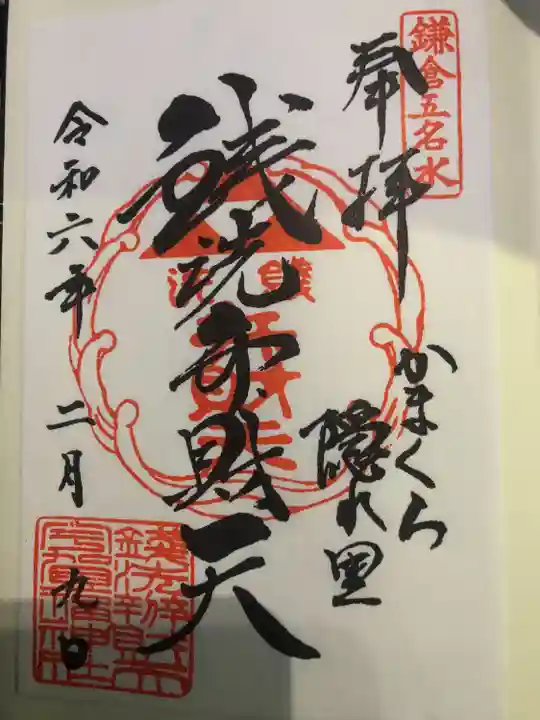 鎌倉五名水
奉拝
かまくら
隠れ里
銭洗弁財天
令和六年二月九日